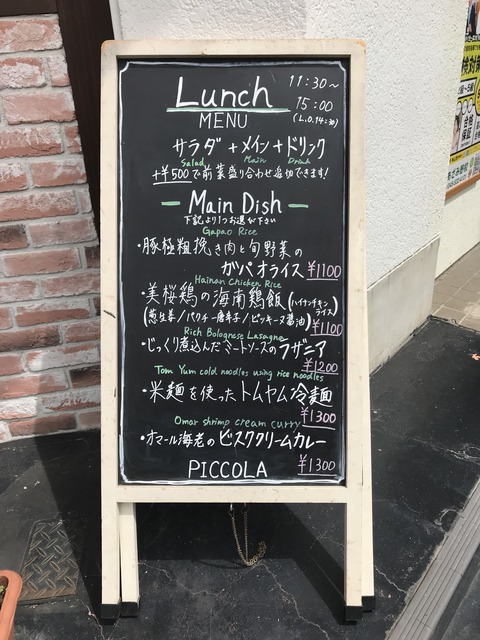 Lunch 11:30~
MENU 15:00
(L.O.14:30)
サラダ+メイン+ドリンク
Salad Main Drink
+¥500で前菜盛り合わせ追加できます!
Main Dish
下記より1つお選び下さい
Gapao Rice
・豚極粗挽き肉と旬野菜の
ガパオライス ¥1100
Hainan Chicken Rice
・美桜鶏の海南鶏飯(ハイナンチキンライス)
(葱生姜/パクチー唐辛子/ピッキーヌ醤油) ¥1100
Rich Bolognese Lasagne
・じっくり煮込んだミートソースのラザニア
¥1200
Tom Yum cold noodles using rice noodles
・米麺を使ったトムヤム冷麺
¥1300
Omar shrimp cream curry
・オマール海老のビスククリームカレー
PICCOLA ¥1300